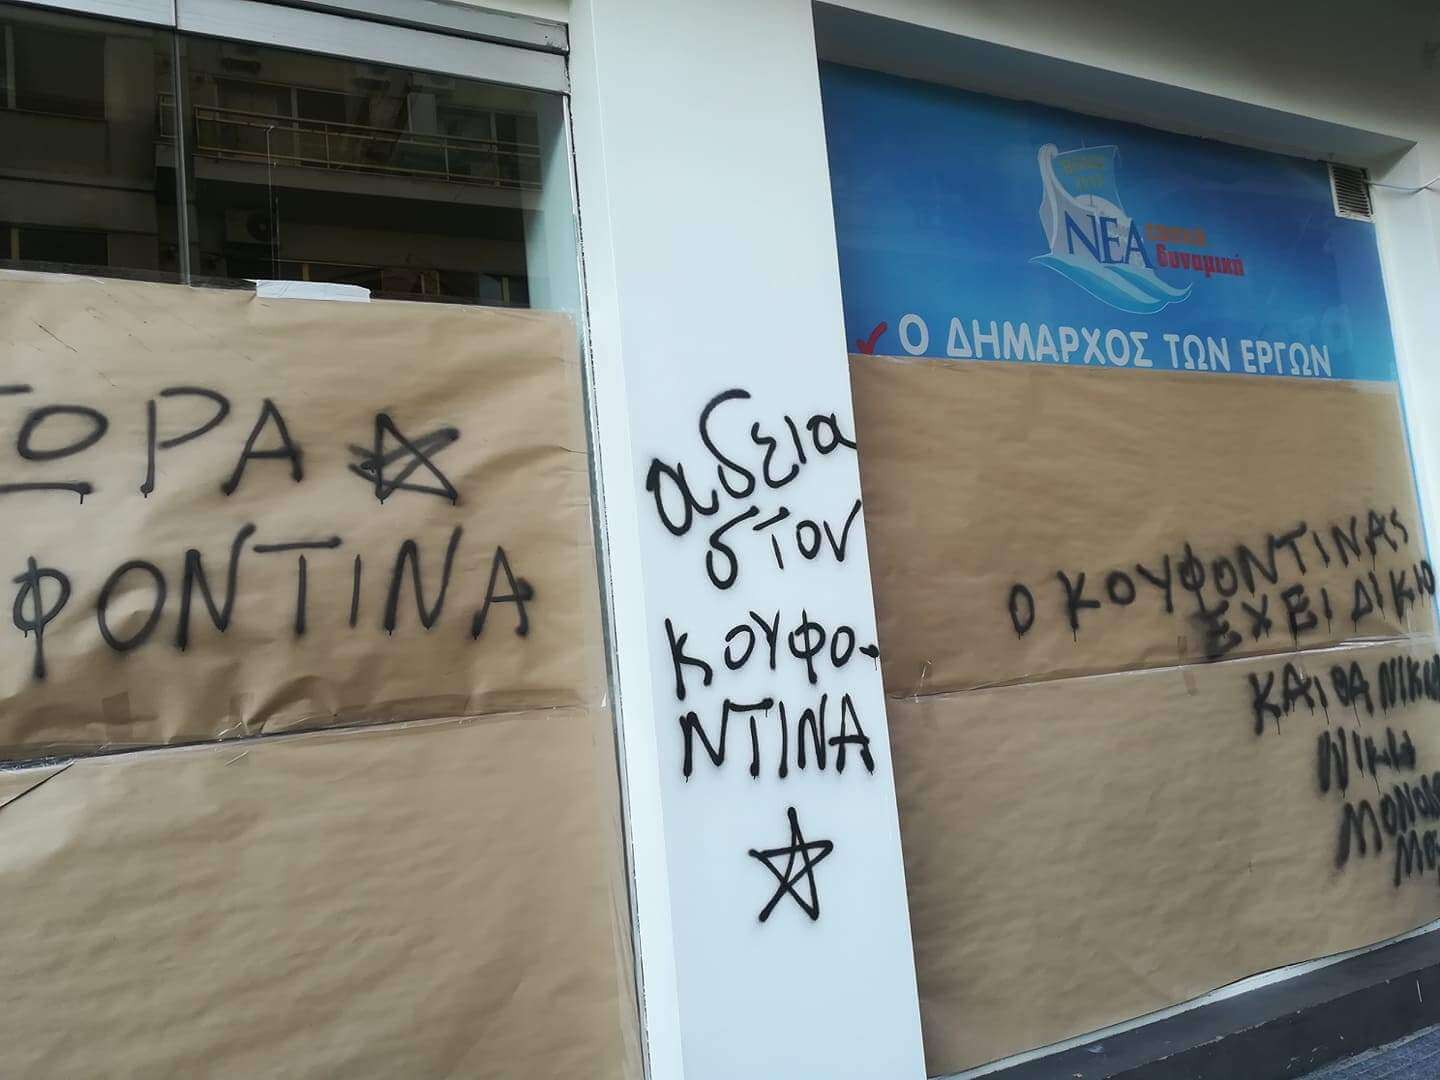 ΤΩΡΑ
ΦΟΝΤΙΝΑ
αδεια
στον
ΚΟΥΦΟ-
ΝΤΙΝΑ
ΝΕΑ
δυναμική
Ο ΔΗΜΑΡΧΟΣ ΤΩΝ ΕΡΓΩΝ
Ο ΚΟΥΦΟΝΤΙΝΑΣ
ΕΧΕΙ ΔΙΚΙΟ
ΚΑΙ ΘΑ
ΝΙΚΗ